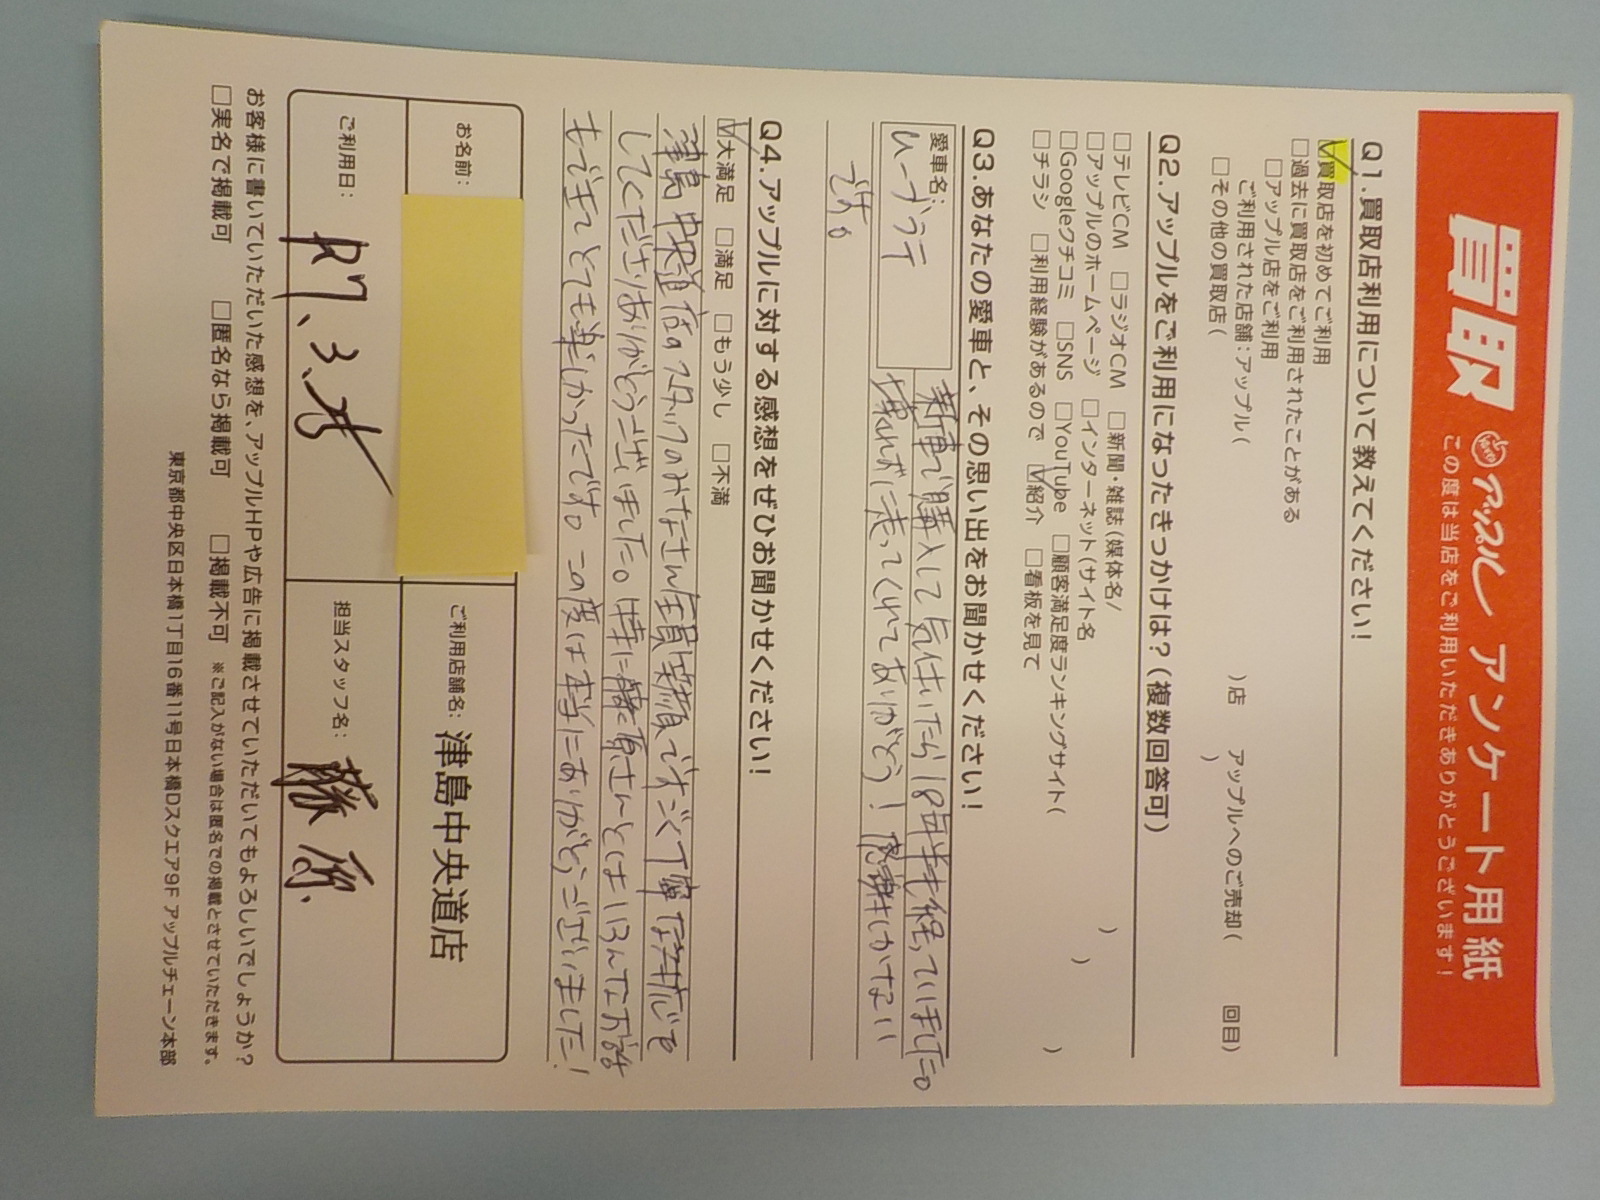 買取 アップル アンケート用紙
この度は当店をご利用いただきありがとうございます!
Q1.買取店利用について教えてください!
☑買取店を初めてご利用
□過去に買取店をご利用されたことがある
□アップル店をご利用
ご利用された店舗:アップル( )店 アップルへのご売却( 回目)
□その他の買取店( )
Q2.アップルをご利用になったきっかけは?(複数回答可)
□テレビCM □ラジオCM □新聞・雑誌(媒体名/ )
□アップルのホームページ □インターネット(サイト名 )
□Googleクチコミ □SNS □YouTube □顧客満足度ランキングサイト( )
□チラシ □利用経験があるので ☑紹介 □看板を見て
Q3.あなたの愛車と、その思い出をお聞かせください!
愛車名:
ムーブラテ
新車で購入して気付いたら18年半も経っていました。
壊れずに走ってくれてありがとう!感謝しかない
です。
Q4.アップルに対する感想をぜひお聞かせください!
☑大満足 □満足 □もう少し □不満
津島中央道店のスタッフのみなさん全員笑顔ですごく丁寧な対応を
してくださりありがとうございました。特に藤原さんとはいろんなお話
もできてとても楽しかったです。この度は本当にありがとうございました!
お名前:
ご利用店舗名: 津島中央道店
ご利用日: R7、3、
担当スタッフ名: 藤原
お客様に書いていただいた感想を、アップルHPや広告に掲載させていただいてもよろしいでしょうか?
□実名で掲載可 □匿名なら掲載可 □掲載不可 ※ご記入がない場合は匿名での掲載とさせていただきます。
東京都中央区日本橋1丁目16番11号日本橋Dスクエア9F アップルチェーン本部